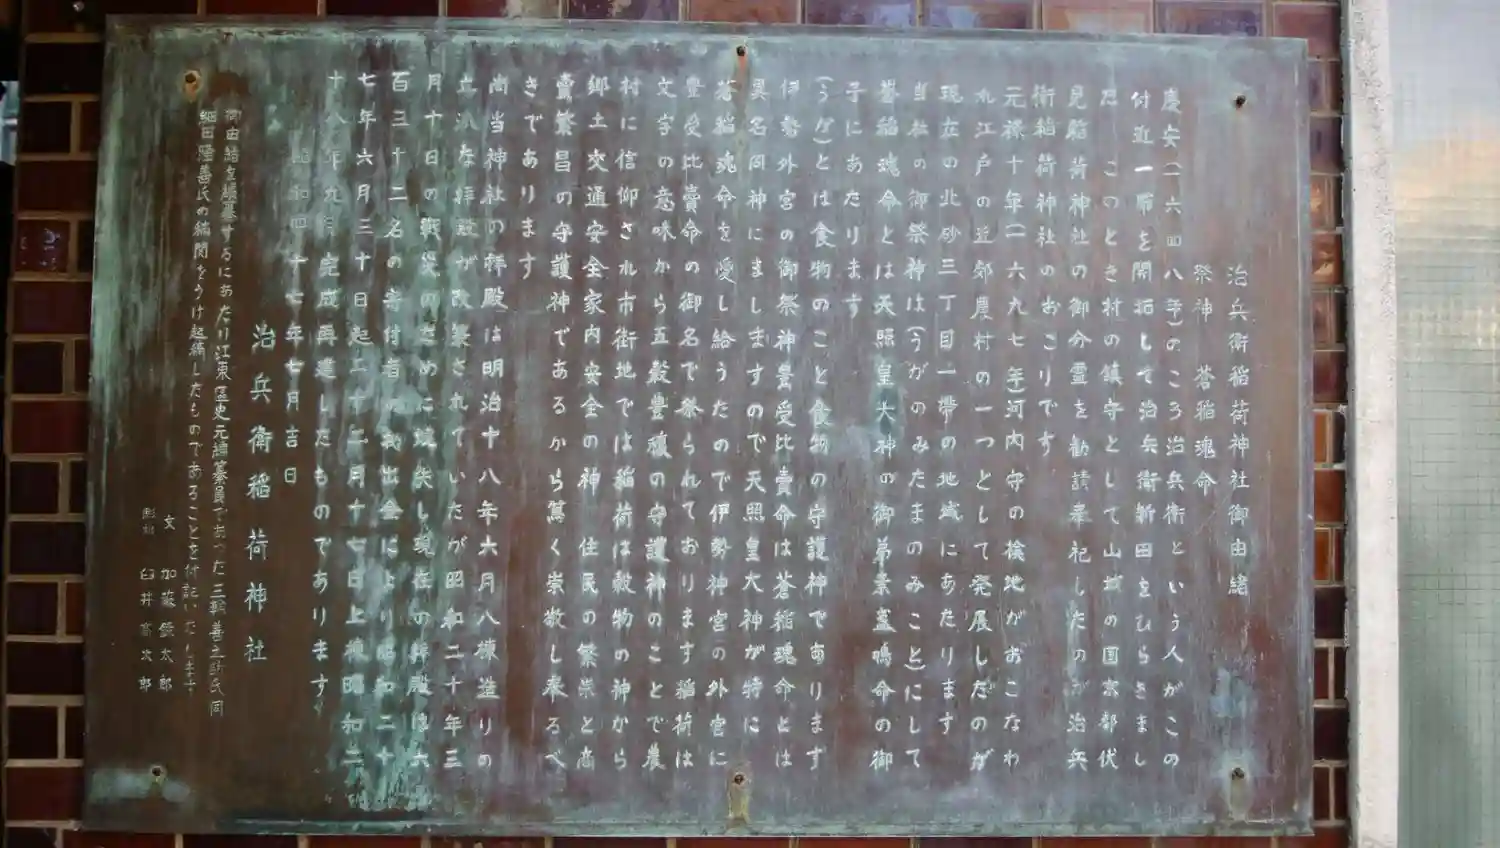 治兵衛稲荷神社御由緒
祭神 蒼稲魂命
慶安(一六四八年)のころ治兵衛という人がこの
付近一帯を開拓して治兵衛新田をひらきまし
た このとき村の鎮守として山城の国京都伏
見稲荷神社の御分霊を勧請奉祀したのが治兵
衛稲荷神社のおこりです
元禄十年(一六九七年)河内守の検地がおこなわ
れ江戸の近郊農村の一つとして発展しだのが
現在の北砂三丁目一帯の地域にあたります
当社の御祭神は(うがのみたまのみこと)にして
蒼稲魂命とは天照皇大神の御弟素盞鳴命の御
子にあたります
(うが)とは食物のこと食物の守護神であります
伊勢外宮の御祭神豊受比賣命は蒼稲魂命とは
異名同神にましますので天照皇大神が特に
蒼稲魂命を愛し給うたので伊勢神宮の外宮に
豊受比賣命の御名で祭られております稲荷は
文字の意味から五穀豊穣の守護神のことで農
村に信仰され市街地では稲荷は穀物の神から
郷土交通安全家内安全の神 住民の繁栄と商
賣繁昌の守護神であるから篤く崇敬し奉るべ
きであります
尚当神社の拝殿は明治十八年六月八棟造りの
立派な拝殿が改築されていたが昭和二十年三
月十日の戦災のために焼失し現在の拝殿は六
百三十二名の寄付者の拠出金により昭和二十
七年六月三十日起工十二月十七日上棟昭和二
十八年九月完成再建したものであります
昭和四十七年七月吉日
治兵衛稲荷神社
御由緒を編纂するにあたり江東区史元編纂員であった三輪善之助氏同
細田隆善氏の校閲をうけ起稿したものであることを付記いたします
文 加藤鉄太郎
彫刻 臼井喜次郎